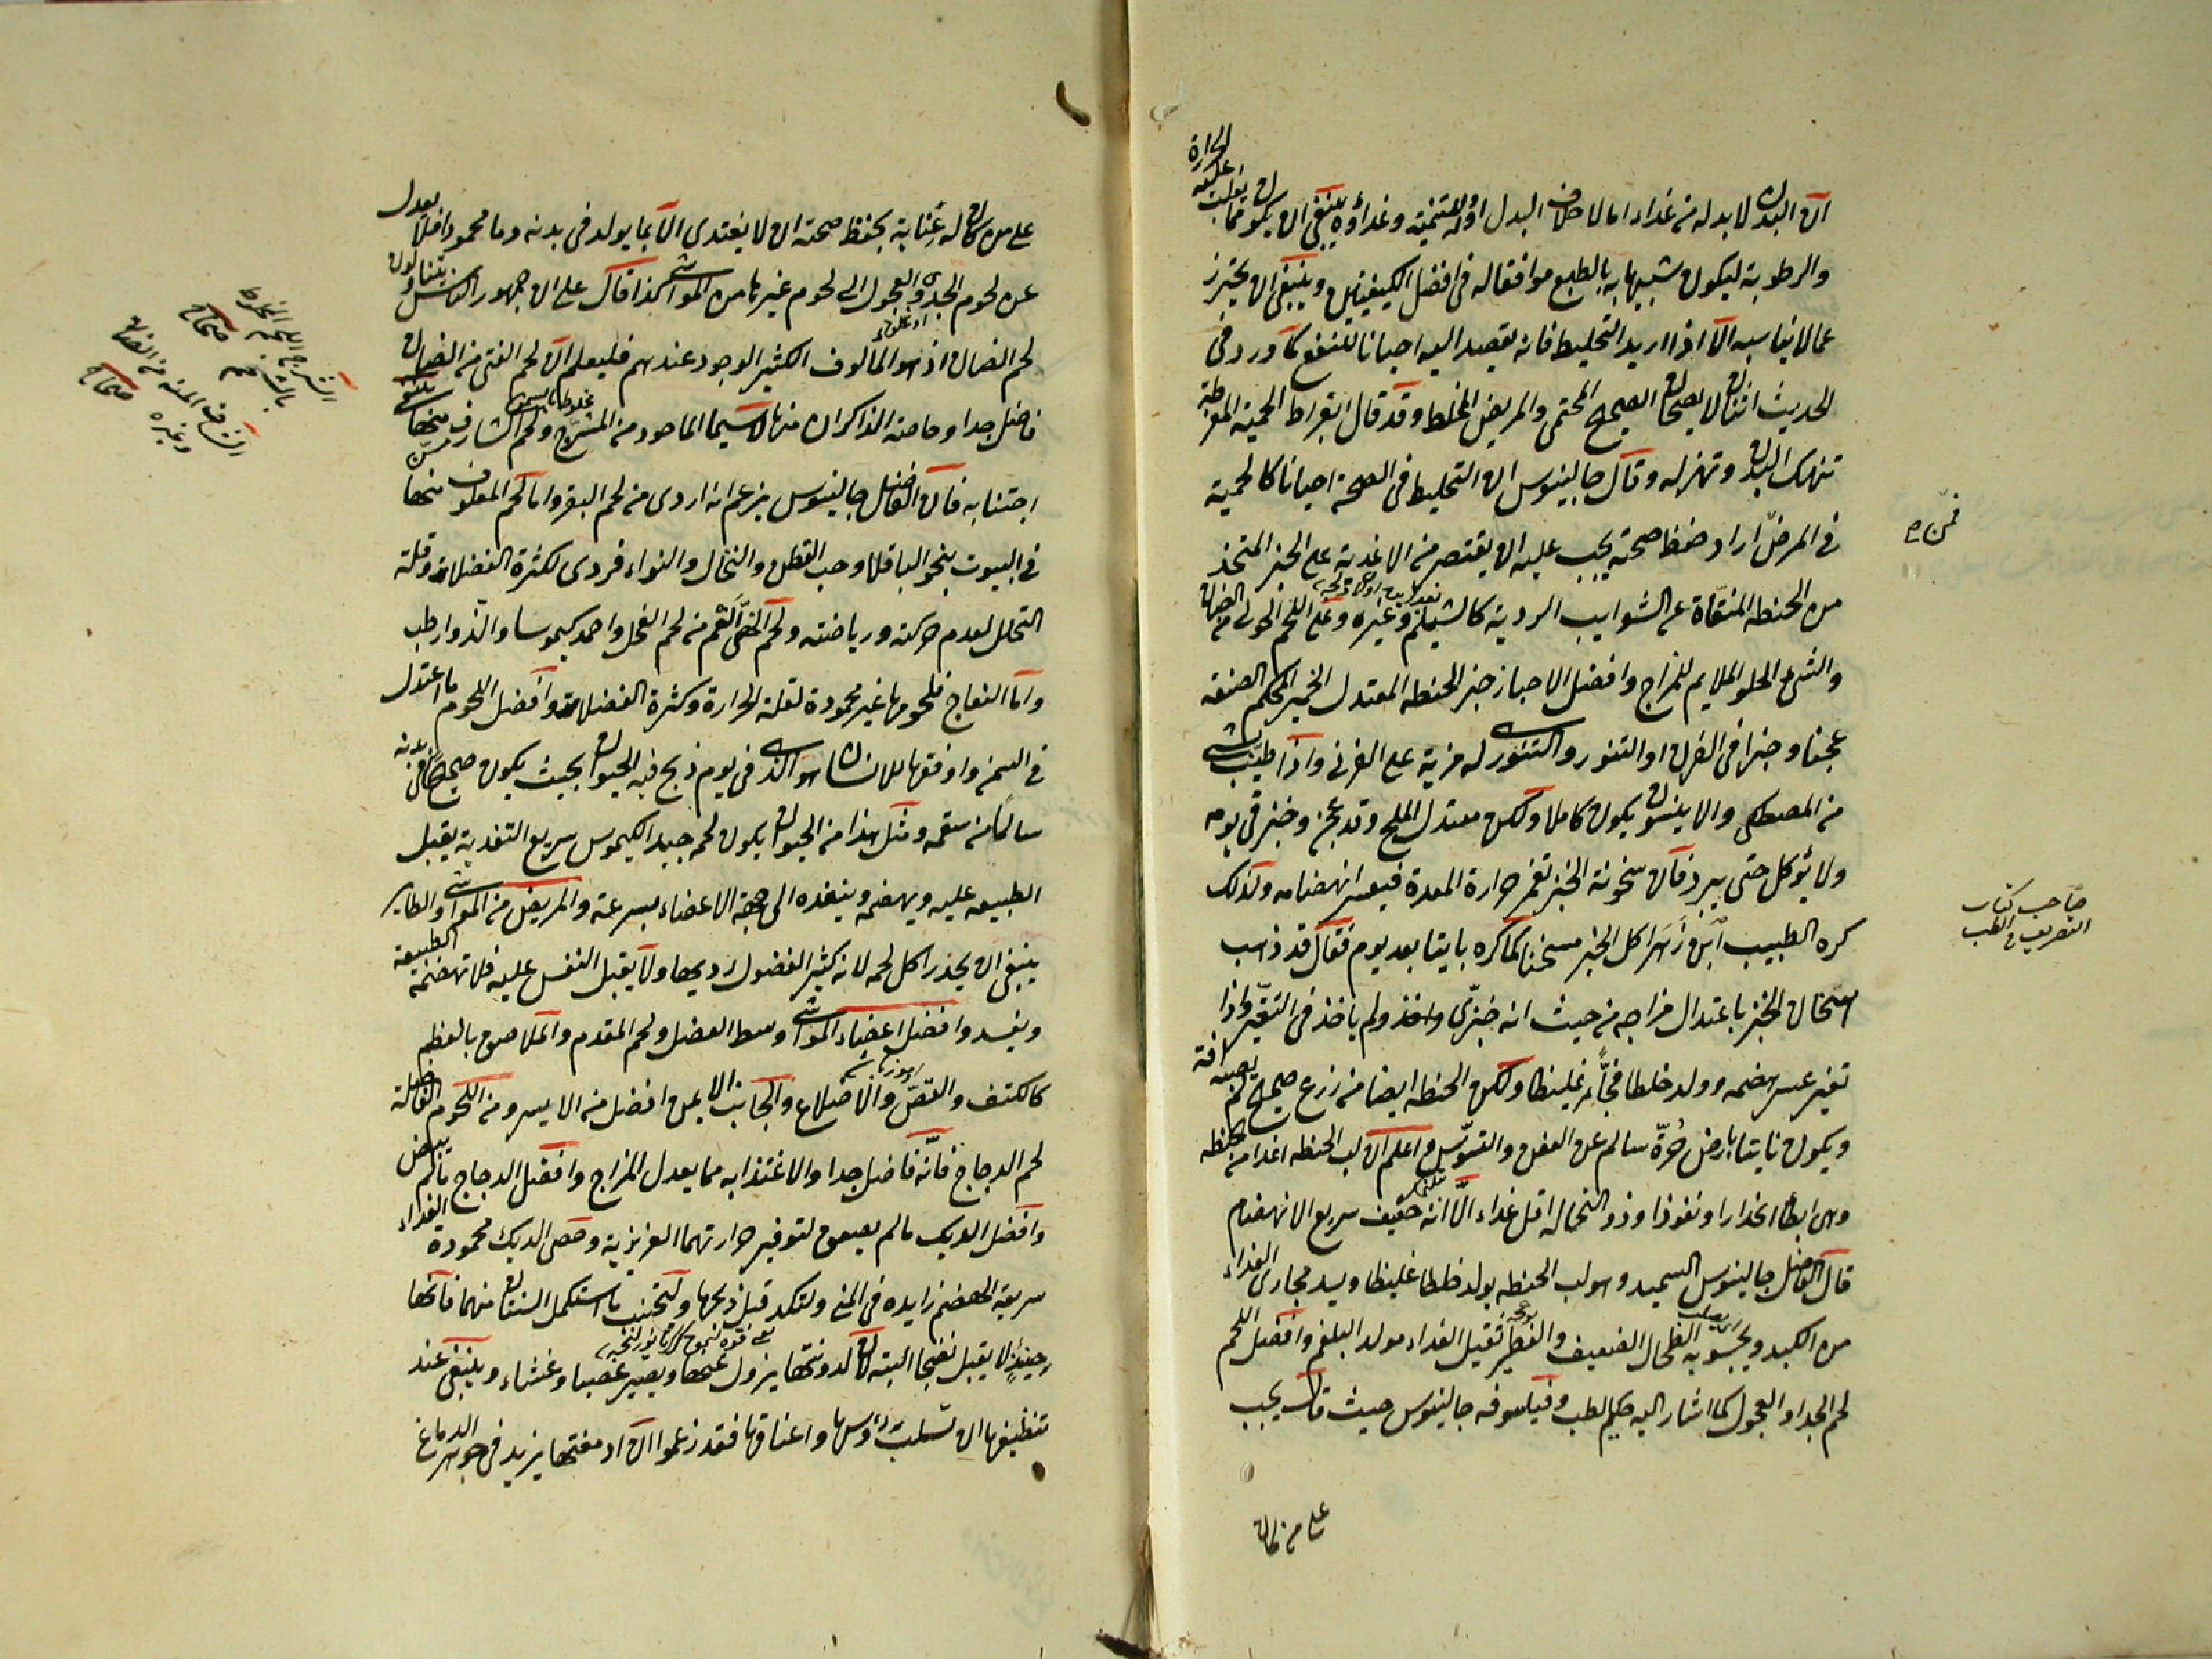 ان البدن لا بد له من غذاء اما لاخلاف البدل او لتنميته وغذاؤه ينبغي ان يكون مما يغلب عليه الحرارة
والرطوبة ليكون شبيها به بالطبع موافقا له في افضل الكيفيتين وينبغي ان يحترز
عما لا يناسبه الا اذا اريد التخليط فانه يقصد اليه احيانا للنفع كما ورد في
الحديث اثنان لا يصحان الصحيح المحتمى والمريض المخلط وقد قال ابقراط الحمية المفرطة
تنهك البدن وتهزله وقال جالينوس ان التخليط في الصحة احيانا كالحمية
في المرض اراد حفظ صحته يجب عليه ان يقتصر من الاغذية على الخبز المتخذ
فمن
من الحنطه المنقاة عن الشوايب الردية كالشيلم وغيره وعلى اللحم الحولى من الضان
والشئ الحلو الملايم للمزاج وافضل الاخباز خبز الحنطه المعتدل الخمير المحكم الصنعه
عجنا وخبزا في الفرن او التنور والتنور له مزية على الفرنى واذا طيب بشئ
من المصطكى والانيسون يكون كاملا ولكن معتدل الملح وقد عجن وخبز في يومه
ولا يؤكل حتى يبرد فان سخونة الخبز تغمر حرارة المعدة فيعسر انهضامه ولذلك
كره الطبيب ابن زهر اكل الخبز مسخنا كما كره بايتا بعد يوم فقال قد ذهب
صاحب كتاب
التصريف في الطب
امتحان الخبز باعتدال مزاجه من حيث انه خبزي واخذ ولم ياخذ في التغير واذا
تغير عسر هضمه وولد خلطا فجا غليظا ولكن الحنطه ايضا من زرع صحيح لم يصبه افة
ويكون نابتا بارض حرة سالم عن العفن والتسوس واعلم ان لب الحنطه اغذا من الحنطه
وهى ابطأ انحدارا ونفوذا وذو النخاله اقل غذاء الا انه خفيف سريع الانهضام
قال الفاضل جالينوس السميد وهو لب الحنطه يولد خلطا غليظا ويسد مجارى الغذاء
من الكبد ويجسو به الطحال الضعيف والفطير ثقيل الغذاء مولد البلغم وافضل اللحم
لحم الجدا والعجول كما اشار اليه حكيم الطب وفيلسوفه جالينوس حيث قال يجب
على من كان
على من كان له عناية بحفظ صحته ان لا يغتدى الا بما يولد في بدنه دما محمودا فلا يعدل
عن لحوم الجدى والعجول الى لحوم غيرها من المواشى كذا قال على ان جمهور الناس يتناولون
لحم الضان اذ هو المالوف الكثير الوجود عندهم فليعلم ان لحم الفتى من الضان
فاضل جدا وخاصة الذاكران منها لاسيما الماخوذ من المشرج ولحم الشارف منها ينبغى
اجتنابه فان الفاضل جالينوس يزعم انه اردى من لحم البقر واما لحم المعلوف منها
في البيوت بنحو الباقلا وحب القطن والنخال والنواء فردى لكثرة الفضلات وقلة
التحلل لعدم حركته ورياضته ولحم الخصى انعم من لحم الفحل واحمد كيموسا والذ وارطب
واما النعاج فلحومها غير محمودة لقلة الحرارة وكثرة الفضلات وافضل اللحوم ما اعتدل
في السمن واوفقها للانسان هو الذى في يوم ذبح فيه الحيوان بحيث يكون صحيحا في بدنه
سالما من سقمه ومثل هذا من الحيوان يكون لحمه جيد الكيموس سريع التغذية يقبل
الطبيعه عليه ويهضمه وينفذه الى جهة الاعضاء بسرعة والمريض من المواشى والطاير
ينبغي ان يحذر اكل لحمه لانه كثير الفضول رديها ولا يقبل النفس عليه فلا تهضمه الطبيعة
ويفسد وافضل اعضاء المواشى وسط العضل ولحم المقدم والملاصق بالعظم
كالكتف والقص والاضلاع والجانب الايمن افضل من الايسر ومن اللحوم الفاضلة
لحم الدجاج فانه فاضل جدا والاغتذا به مما يعدل المزاج وافضل الدجاج ما لم يبض
وافضل الديك ما لم يصعق لتوفير حرارتهما الغريزية وخصى الديك محمودة الغذاء
سريعة الهضم زايده في المنى ولتكد قبل ذبحها ولتجتنب ما استكمل السنتان منهما فانها
حينئذ لا يقبل نضجا البته لان لدونتها يزول عنها ويصير عصبا وغشاء وينبغي عند
تنظيفها ان تسلب رؤسها واعناقها فقد زعموا ان ادمغتها يزيد في جوهر الدماغ